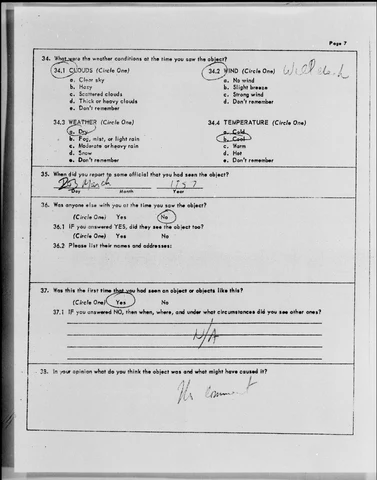 Page 7
34. What were the weather conditions at the time you saw the object?
34.1 CLOUDS (Circle One) 34.2 WIND (Circle One)
a. Clear sky a. No wind
b. Hazy b. Slight breeze
c. Scattered clouds c. Strong wind
d. Thick or heavy clouds d. Don't remember
e. Don't remember
34.3 WEATHER (Circle One) 34.4 TEMPERATURE (Circle One)
a. Dry a. Cold
b. Fog, mist, or light rain b. Cool
c. Moderate or heavy rain c. Warm
d. Snow d. Hot
e. Don't remember e. Don't remember
35. When did you report to some official that you had seen the object?
March 1957
Day Month Year
36. Was anyone else with you at the time you saw the object?
(Circle One) Yes No
36.1 IF you answered YES, did they see the object too?
(Circle One) Yes No
36.2 Please list their names and addresses:
37. Was this the first time that you had seen an object or objects like this?
(Circle One) Yes No
37.1 IF you answered NO, then when, where, and under what circumstances did you see other ones?
N/A
38. In your opinion what do you think the object was and what might have caused it?
No comment